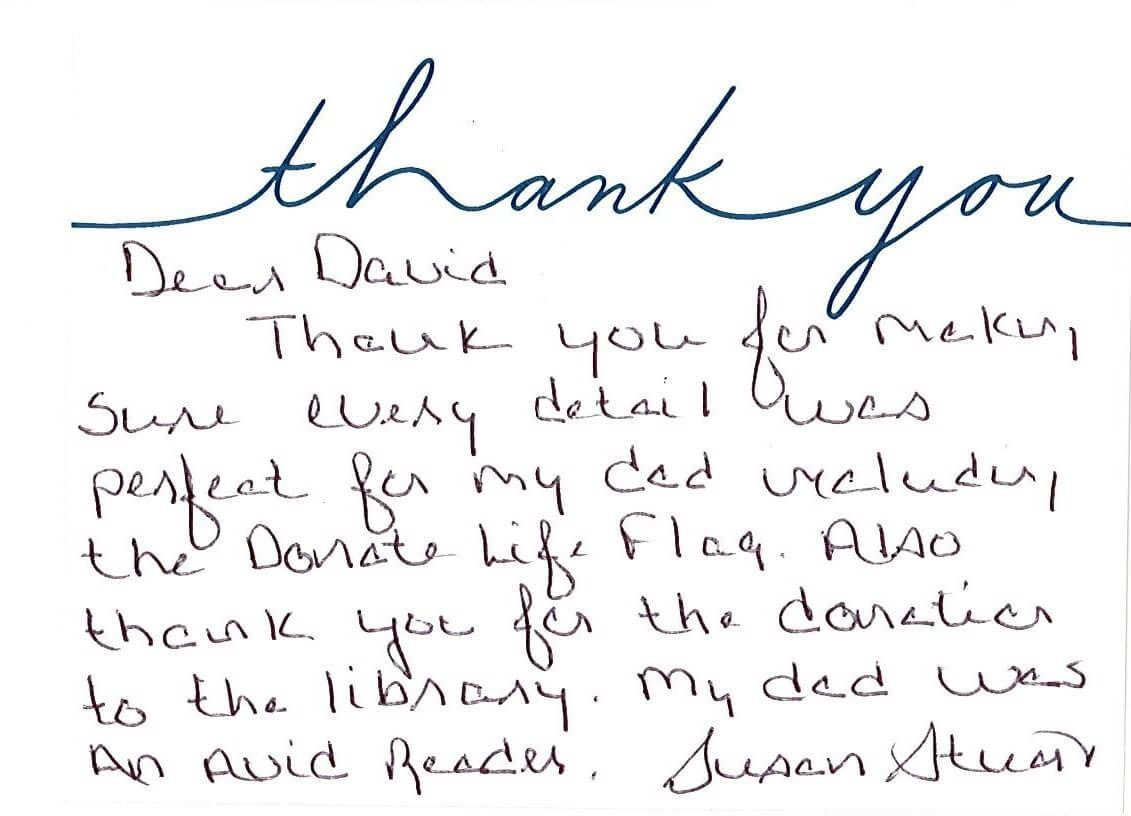 thank you
Dear David
Thank you for making
sure every detail was
perfect for my dad including
the Donate Life Flag. Also
thank you for the donation
to the library. My dad was
An Avid Reader. Susan Stuart